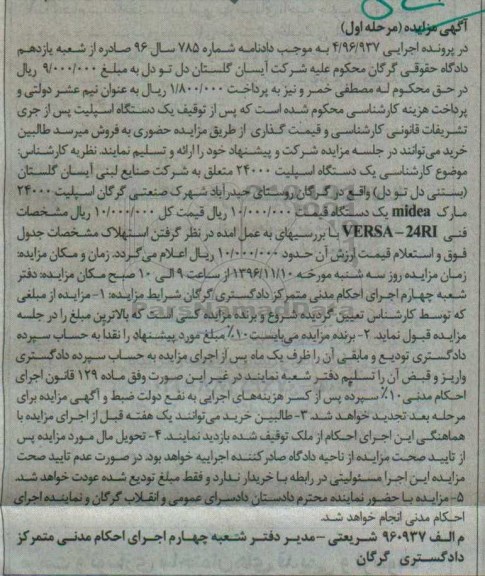 آگهی مزایده (مرحله اول)
در پرونده اجرایی ۴/۹۶/۹۳۷ به موجب دادنامه شماره ۷۸۵ سال ۹۶ صادره از شعبه یازدهم
دادگاه حقوقی گرگان محکوم علیه شرکت آیسان گلستان دل تو دل به مبلغ ۹/۰۰۰/۰۰۰ ریال
در حق محکوم له مصطفی خمر و نیز به پرداخت ۱/۸۰۰/۰۰۰ ریال به عنوان نیم عشر دولتی و
پرداخت هزینه کارشناسی محکوم شده است که پس از توقیف یک دستگاه اسپلیت پس از جری
تشریفات قانونی کارشناسی و قیمت گذاری از طریق مزایده حضوری به فروش میرسد طالبین
خرید می‌توانند در جلسه مزایده شرکت و پیشنهاد خود را ارائه و تسلیم نمایند. نظریه کارشناس:
موضوع کارشناسی یک دستگاه اسپلیت ۲۴۰۰۰ متعلق به شرکت صنایع لبنی آیسان گلستان
(بستنی دل تو دل) واقع در گرگان روستای حیدرآباد شهرک صنعتی گرگان اسپلیت ۲۴۰۰۰
مارک midea یک دستگاه قیمت ۱۰/۰۰۰/۰۰۰ ریال قیمت کل ۱۰/۰۰۰/۰۰۰ ریال مشخصات
فنی VERSA – 24RI با بررسیهای به عمل آمده در نظر گرفتن استهلاک مشخصات جدول
فوق و استعلام قیمت ارزش آن حدود ۱۰/۰۰۰/۰۰۰ ریال اعلام می‌گردد. زمان و مکان مزایده:
زمان مزایده روز سه شنبه مورخه ۱۳۹۶/۱۱/۱۰ از ساعت ۹ الی ۱۰ صبح مکان مزایده: دفتر
شعبه چهارم اجرای احکام مدنی متمرکز دادگستری گرگان شرایط مزایده: ۱- مزایده از مبلغی
که توسط کارشناس تعیین گردیده شروع و برنده مزایده کسی است که بالاترین مبلغ را در جلسه
مزایده قبول نماید. ۲- برنده مزایده می‌بایست ۱۰٪ مبلغ مورد پیشنهاد را نقداً به حساب سپرده
دادگستری تودیع و مابقی آن را ظرف یک ماه پس از اجرای مزایده به حساب سپرده دادگستری
واریز و قبض آن را تسلیم دفتر شعبه نمایند در غیر این صورت وفق ماده ۱۲۹ قانون اجرای
احکام مدنی ۱۰٪ سپرده پس از کسر هزینه‌های اجرایی به نفع دولت ضبط و آگهی مزایده برای
مرحله بعد تجدید خواهد شد. ۳- طالبین خرید می‌توانند یک هفته قبل از اجرای مزایده با
هماهنگی این اجرای احکام از ملک توقیف شده بازدید نمایند. ۴- تحویل مال مورد مزایده پس
از تایید صحت مزایده از ناحیه دادگاه صادر کننده اجراییه خواهد بود. در صورت عدم تایید صحت
مزایده این اجرا مسئولیتی در رابطه با خریدار ندارد و فقط مبلغ تودیع شده عودت خواهد شد.
۵- مزایده با حضور نماینده محترم دادستان دادسرای عمومی و انقلاب گرگان و نماینده اجرای
احکام مدنی انجام خواهد شد.
م الف ۹۶۰۹۳۷ شریعتی – مدیر دفتر شعبه چهارم اجرای احکام مدنی متمرکز
دادگستری گرگان